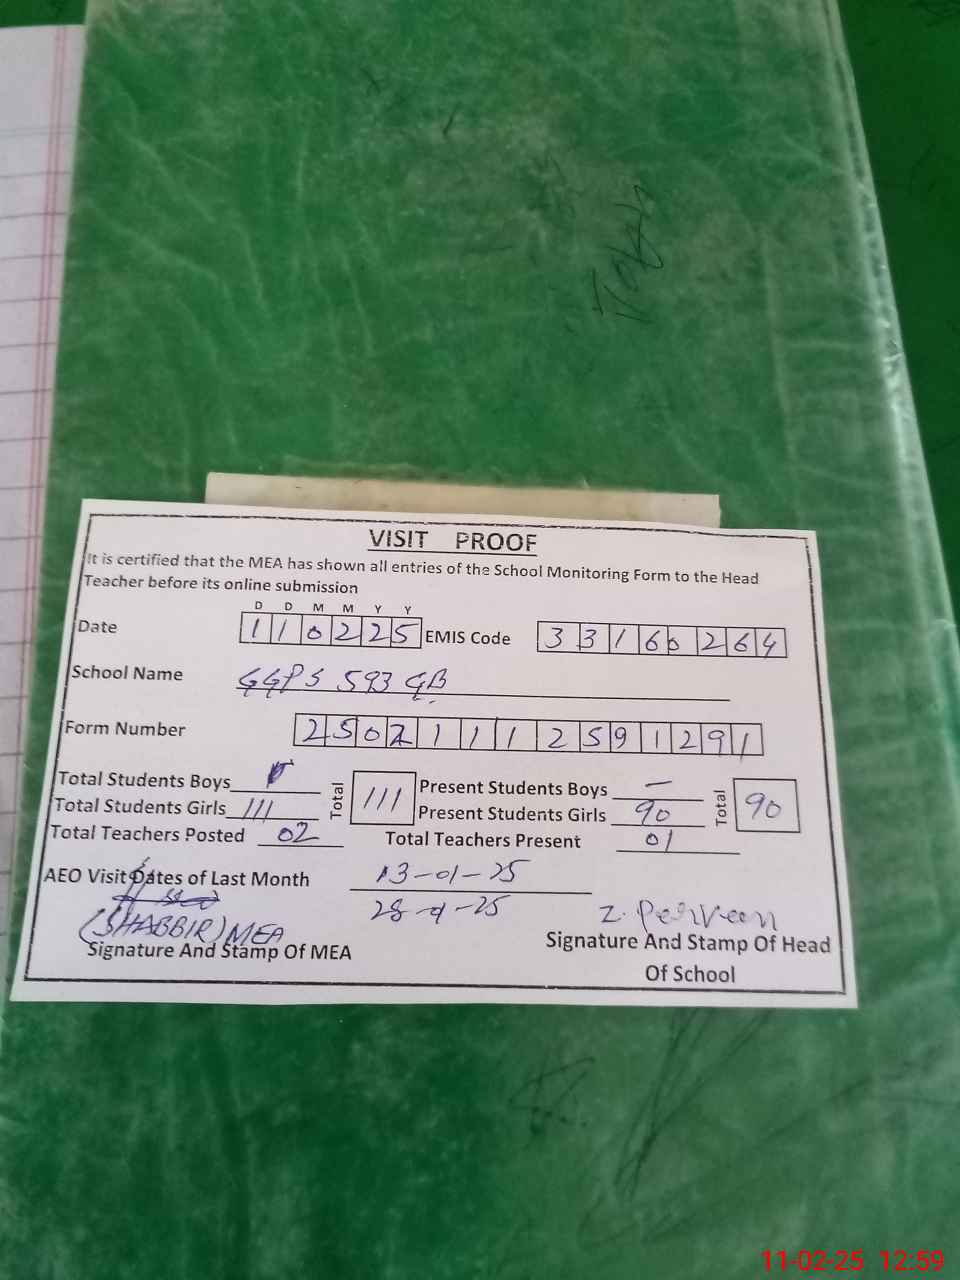 VISIT PROOF
It is certified that the MEA has shown all entries of the School Monitoring Form to the Head
Teacher before its online submission
D D M M Y Y
Date 110225 EMIS Code 33160264
School Name GGPS 593 GB
Form Number 25021112591291
Total Students Boys Total 111 Present Students Boys — Total 90
Total Students Girls 111 Present Students Girls 90
Total Teachers Posted 02 Total Teachers Present 01
AEO Visit Dates of Last Month 13-01-25
28-01-25
(SHABBIR) MEA Z. Perveen
Signature And Stamp Of MEA Signature And Stamp Of Head
Of School
11-02-25 12:59